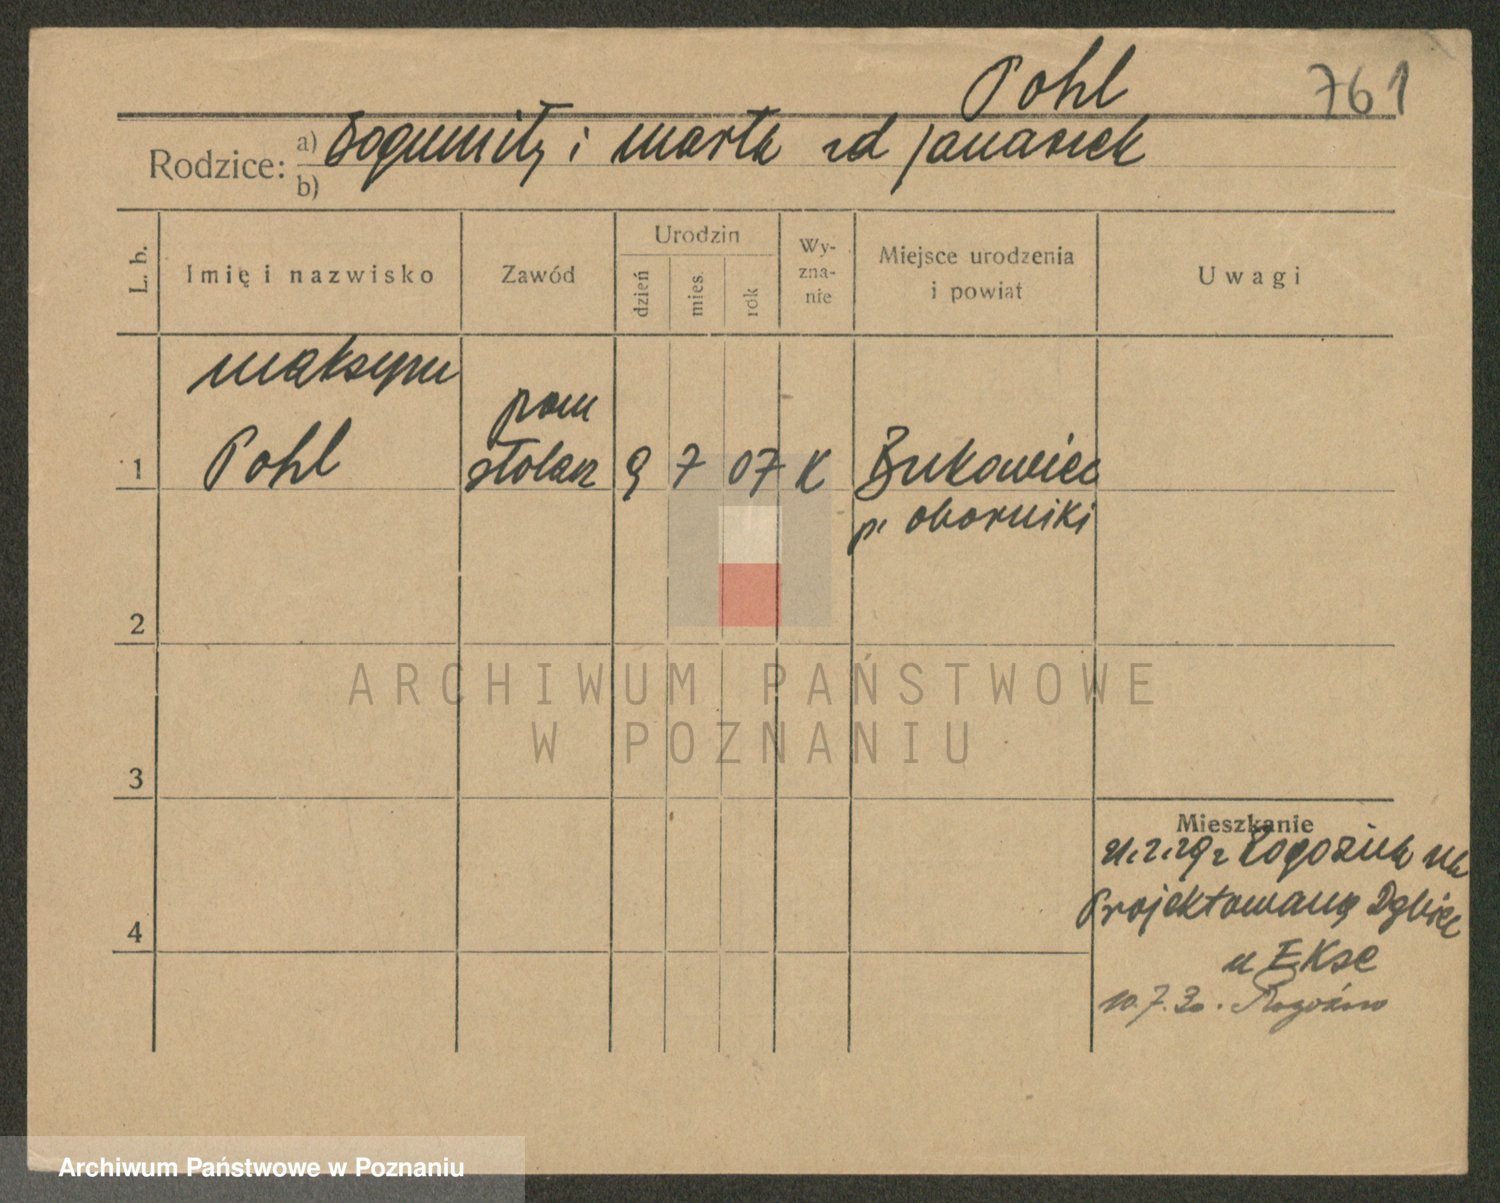 Pohl
761
Rodzice: a) Bogumiły i Marta zd Janaszek
b)
L. b.
Imię i nazwisko
Zawód
Urodzin
dzień
mies.
rok
Wy-
zna-
nie
Miejsce urodzenia
i powiat
Uwagi
Maksym
Pohl
pom
stolarz
1
9 7 07 K
Bukowiec
p. oborniki
2
3
4
Mieszkanie
z Rogoźna na
Projektowaną Dębiec
u
10.7.30. Rogoźno
ARCHIWUM PAŃSTWOWE
W POZNANIU
Archiwum Państwowe w Poznaniu